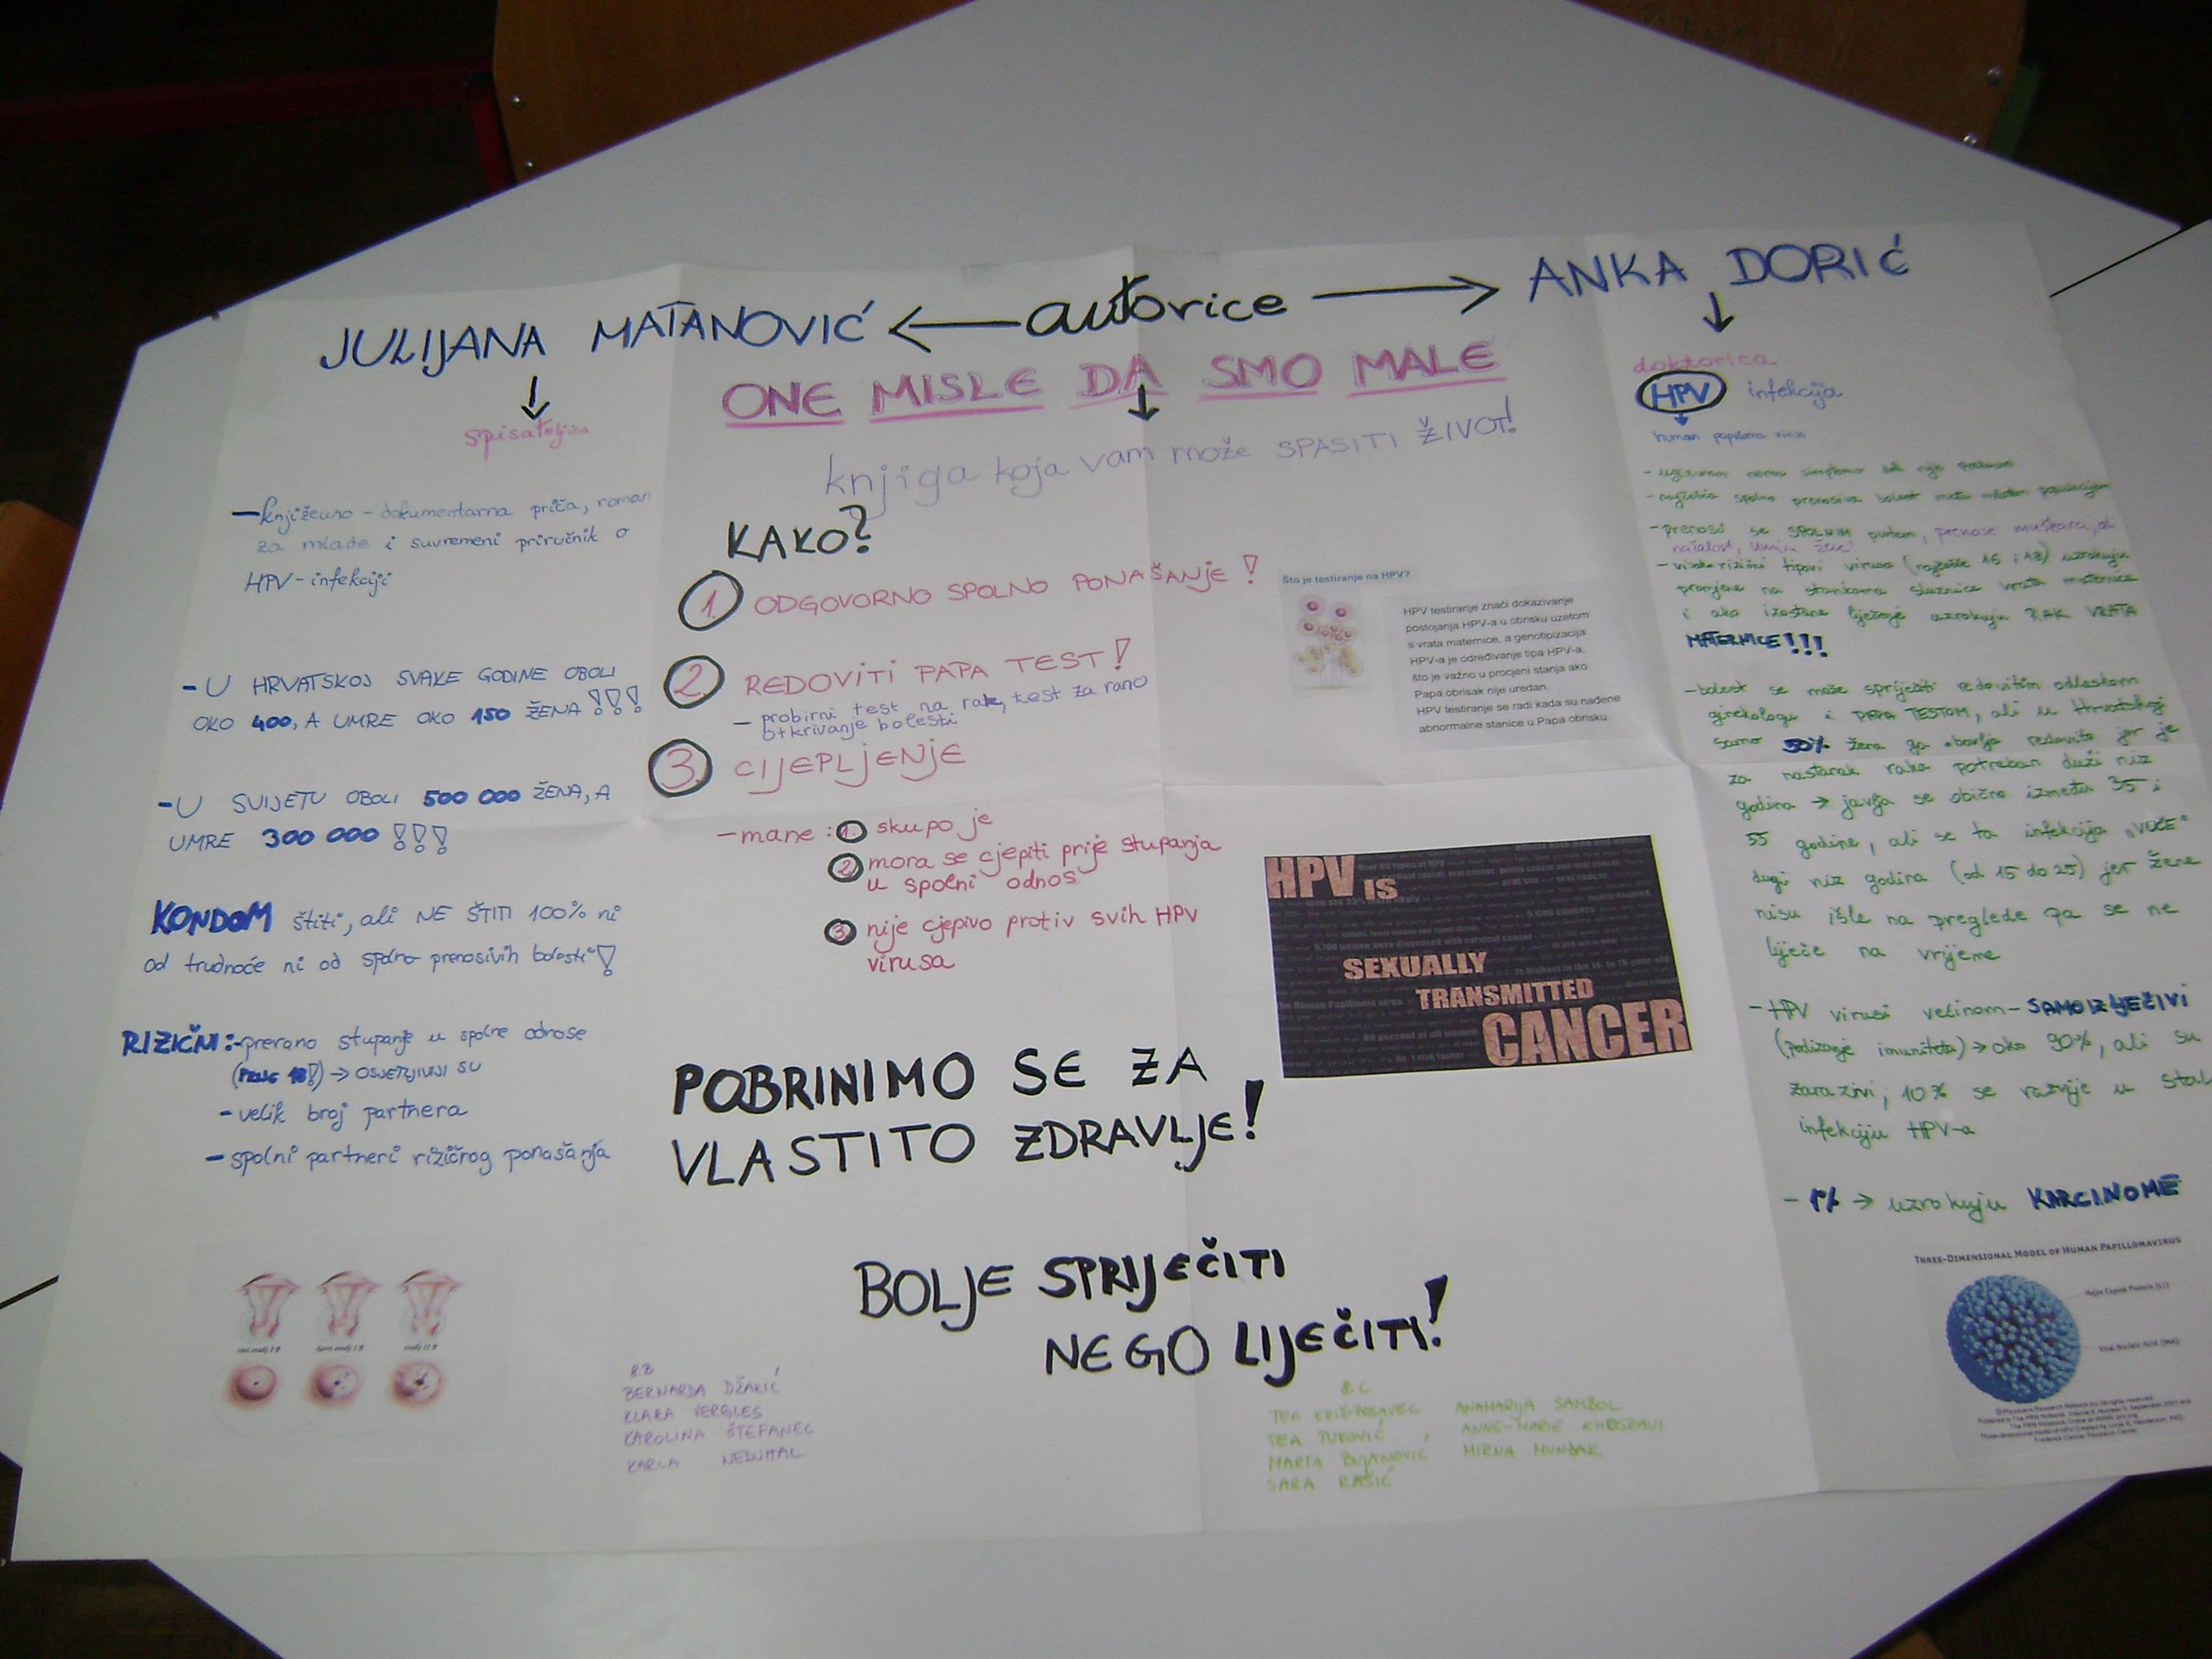 JULIJANA MATANOVIĆ ← autorice → ANKA DORIĆ
ONE MISLE DA SMO MALE
knjiga koja vam može SPASITI ŽIVOT!
spisateljica
- književno - dokumentarna priča, roman
za mlade i suvremeni priručnik o
HPV - infekciji
- U HRVATSKOJ SVAKE GODINE OBOLI
OKO 400, A UMRE OKO 150 ŽENA!!!
- U SVIJETU OBOLI 500 000 ŽENA, A
UMRE 300 000 !!!
KONDOM štiti, ali NE ŠTITI 100% ni
od trudnoće ni od spolno prenosivih bolesti!
RIZIČNI: - prerano stupanje u spolne odnose
(PRIJE 18!) → OSJETLJIVIJI SU
- velik broj partnera
- spolni partneri rizičnog ponašanja
KAKO?
1. ODGOVORNO SPOLNO PONAŠANJE!
2. REDOVITI PAPA TEST!
- probirni test na rak, test za rano
otkrivanje bolesti
3. CIJEPLJENJE
- mane: 1. skupo je
2. mora se cjepiti prije stupanja
u spolni odnos
3. nije cjepivo protiv svih HPV
virusa
POBRINIMO SE ZA
VLASTITO ZDRAVLJE!
BOLJE SPRIJEČITI
NEGO LIJEČITI!
Što je testiranje na HPV?
HPV testiranje znači dokazivanje
postojanja HPV-a u obrisku uzetom
s vrata maternice, a genotipizacija
HPV-a je određivanje tipa HPV-a,
što je važno u procjeni stanja ako
Papa obrisak nije uredan.
HPV testiranje se radi kada su nađene
abnormalne stanice u Papa obrisku.
HPV IS
SEXUALLY
TRANSMITTED
CANCER
doktorica
HPV infekcija
human papiloma virus
- uglavnom nema simptoma
- najčešća spolno prenosiva bolest među mladom populacijom
- prenosi se SPOLNIM putem, prenose muškarci, ali
nažalost, umiru žene!
- visoko rizični tipovi virusa (najčešće 16 i 18) uzrokuju
promjene na stanicama sluznice vrata maternice
i ako izostane liječenje uzrokuju RAK VRATA
MATERNICE!!!
- bolest se može spriječiti redovitim odlaskom
ginekologu i PAPA TESTOM, ali u Hrvatskoj
samo 50% žena ga obavlja redovito jer je
za nastanak raka potreban duži niz
godina → javlja se obično između 35 i
55 godine, ali se ta infekcija „VUČE"
dugi niz godina (od 15 do 25) jer žene
nisu išle na preglede pa se ne
liječe na vrijeme
- HPV virusi većinom - SAMOIZLJEČIVI
(podizanje imuniteta) → oko 90%, ali su
zarazni; 10% se razvije u stal
infekciju HPV-a
- 1% → uzrokuju KARCINOME
THREE-DIMENSIONAL MODEL OF HUMAN PAPILLOMAVIRUS
Major Capsid Protein (L1)
Viral Nucleic Acid (DNA)
8.B
BERNARDA DŽAKIĆ
KLARA VERGLES
KAROLINA ŠTEFANEC
KARLA
8.C
TEA KRIŽ-POSAVEC ANAMARIJA SANBOL
TEA ANNE-MARIE KHOSRAVI
MARTA BUJANOVIĆ MIRNA MUNĐAK
SARA RAŠIĆ